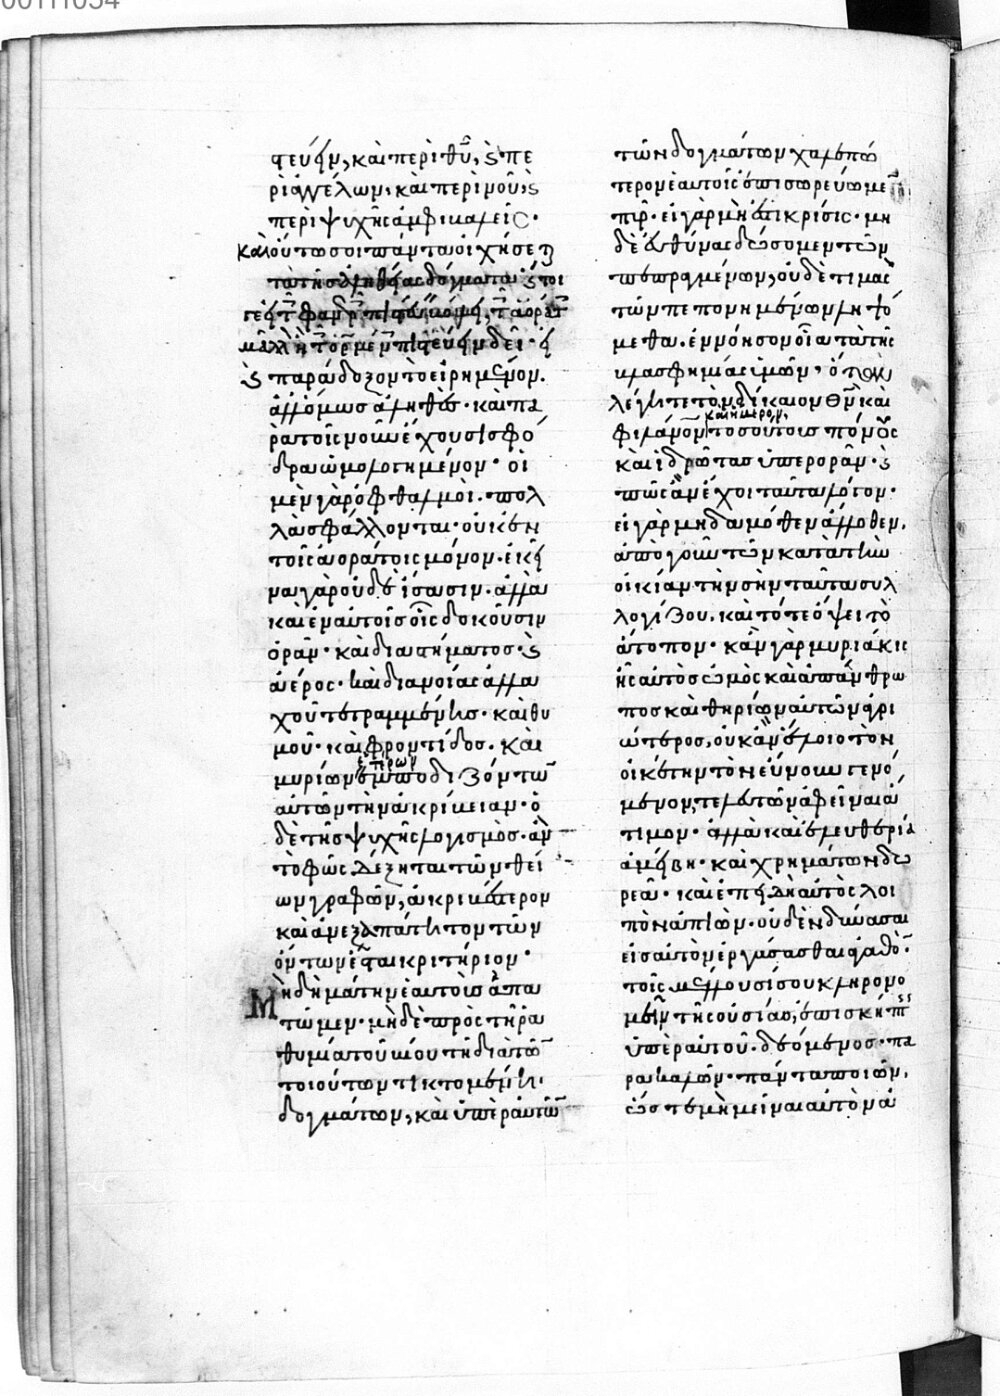 στεύειν, καὶ περὶ θῦ, ϗ πε
ρὶ ἀγγέλων· καὶ περὶ νοῦ, ϗ
περὶ ψυχῆς ἀμφιβαλεῖς·
καὶ οὕτω σοι πάντα οἰχήσε
τὰ τῆς ἀληθείας δόγματα
ϗ παράδοξον τὸ εἰρημένον.
ἀλλ' ὅμως ἀληθὲς· καὶ πα
ρὰ τοῖς νοῦν ἔχουσι σφό
δρα ὡμολογημένον· οἱ
μὲν γὰρ ὀφθαλμοὶ· πολ
λὰ σφάλλονται· οὐκ ἐν
τοῖς ἀοράτοις μόνον· ἐκεῖ
να γὰρ οὐδὲ ἴσασιν· ἀλλὰ
καὶ ἐν αὐτοῖς οἷς δοκοῦσιν
ὁρᾶν· καὶ διαστήματος· ϗ
ἀέρος· καὶ διανοίας ἀλλα
χοῦ τετραμμένης· καὶ θυ
μοῦ· καὶ φροντίδος· καὶ
ἑτέρων
μυρίων ἐμποδιζόντων
αὐτῶν τὴν ἀκρίβειαν· ὁ
δὲ τῆς ψυχῆς λογισμὸς· ἂν
τὸ φῶς δέξηται τῶν θεί
ων γραφῶν, ἀκριβέστερον
καὶ ἀνεξαπάτητον τῶν
ὄντων ἔσται κριτήριον·
Μὴ δὴ μάτην ἑαυτοὺς ἀπα
τῶμεν· μηδὲ πρὸς τῇ ῥα
θυμίᾳ τοῦ βίου τῇ διὰ τῶν
τοιούτων τικτομένῃ·
δογμάτων, καὶ ὑπὲρ αὐτῶν
τῶν δογμάτων χαλεπώ
τερον ἑαυτοῖς ἐπισωρεύσωμεν
πῦρ· εἰ γὰρ μὴ ἔστι κρίσις· μη
δὲ εὐθύνας δώσομεν τῶν
πεπραγμένων, οὐδὲ τιμὰς
τῶν πεπονημένων ληψό
μεθα· ἐννόησον οἷα τὰ τῆς
βλασφημίας ὑμῶν, ὅταν
λέγητε τὸν δίκαιον θν καὶ
καὶ ἥμερον,
φιλάνον τοσούτους πόνους
καὶ ἱδρῶτας ὑπερορᾶν· ϗ
πῶς ἂν ἔχοι ταῦτα λόγον·
εἰ γὰρ μηδαμόθεν ἄλλοθεν,
ἀπὸ γοῦν τῶν κατὰ τὴν
οἰκίαν τὴν σὴν ταῦτα συλ
λογίζου. καὶ τότε ὄψει τὸ
ἄτοπον· κἂν γὰρ μυριάκις
ᾖς αὐτὸς ὠμὸς καὶ ἀπάνθρω
πος καὶ θηρίων αὐτῶν ἀγρι
ώτερος, οὐκ ἂν ἕλοιο τὸν
οἰκέτην τὸν εὔνουν γενό
μενον, τελευτῶν ἀφεῖναι ἄ
τιμον· ἀλλὰ καὶ ἐλευθερίᾳ
ἀμείβῃ· καὶ χρημάτων δω
ρεᾷ· καὶ ἐπειδὴ αὐτὸς λοι
πὸν ἀπιὼν· οὐδὲν δυνάσαι
εἰς αὐτὸν ἐργάσασθαι ἀγαθὸν·
τοῖς μέλλουσί σου κληρονο
μεῖν τῆς οὐσίας, ἐπισκήπτεις
ὑπὲρ αὐτοῦ· δεόμενος· πα
ρακαλῶν· πάντα ποιῶν,
ὥστε μὴ μεῖναι αὐτὸν ἀ